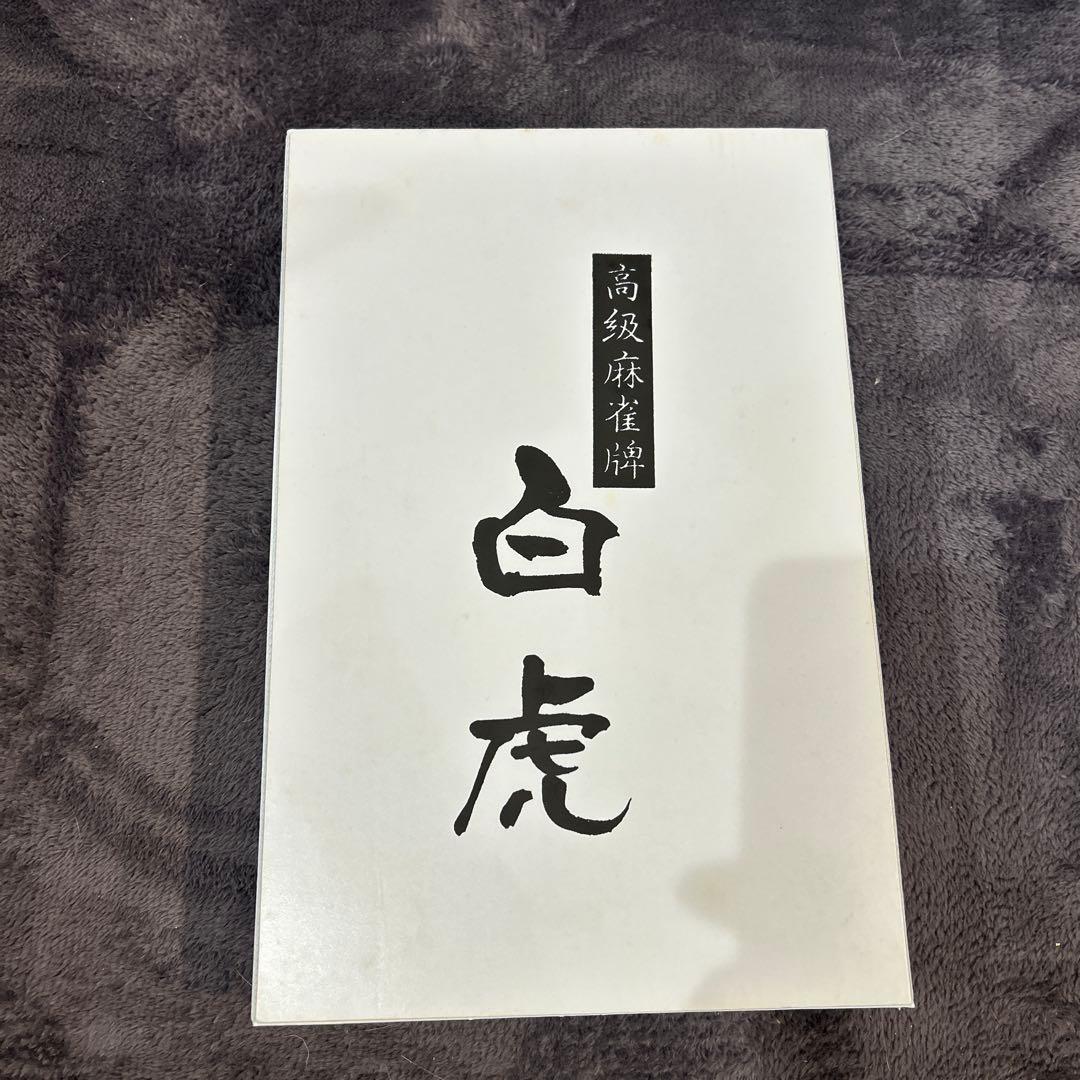 高級麻雀牌
白虎